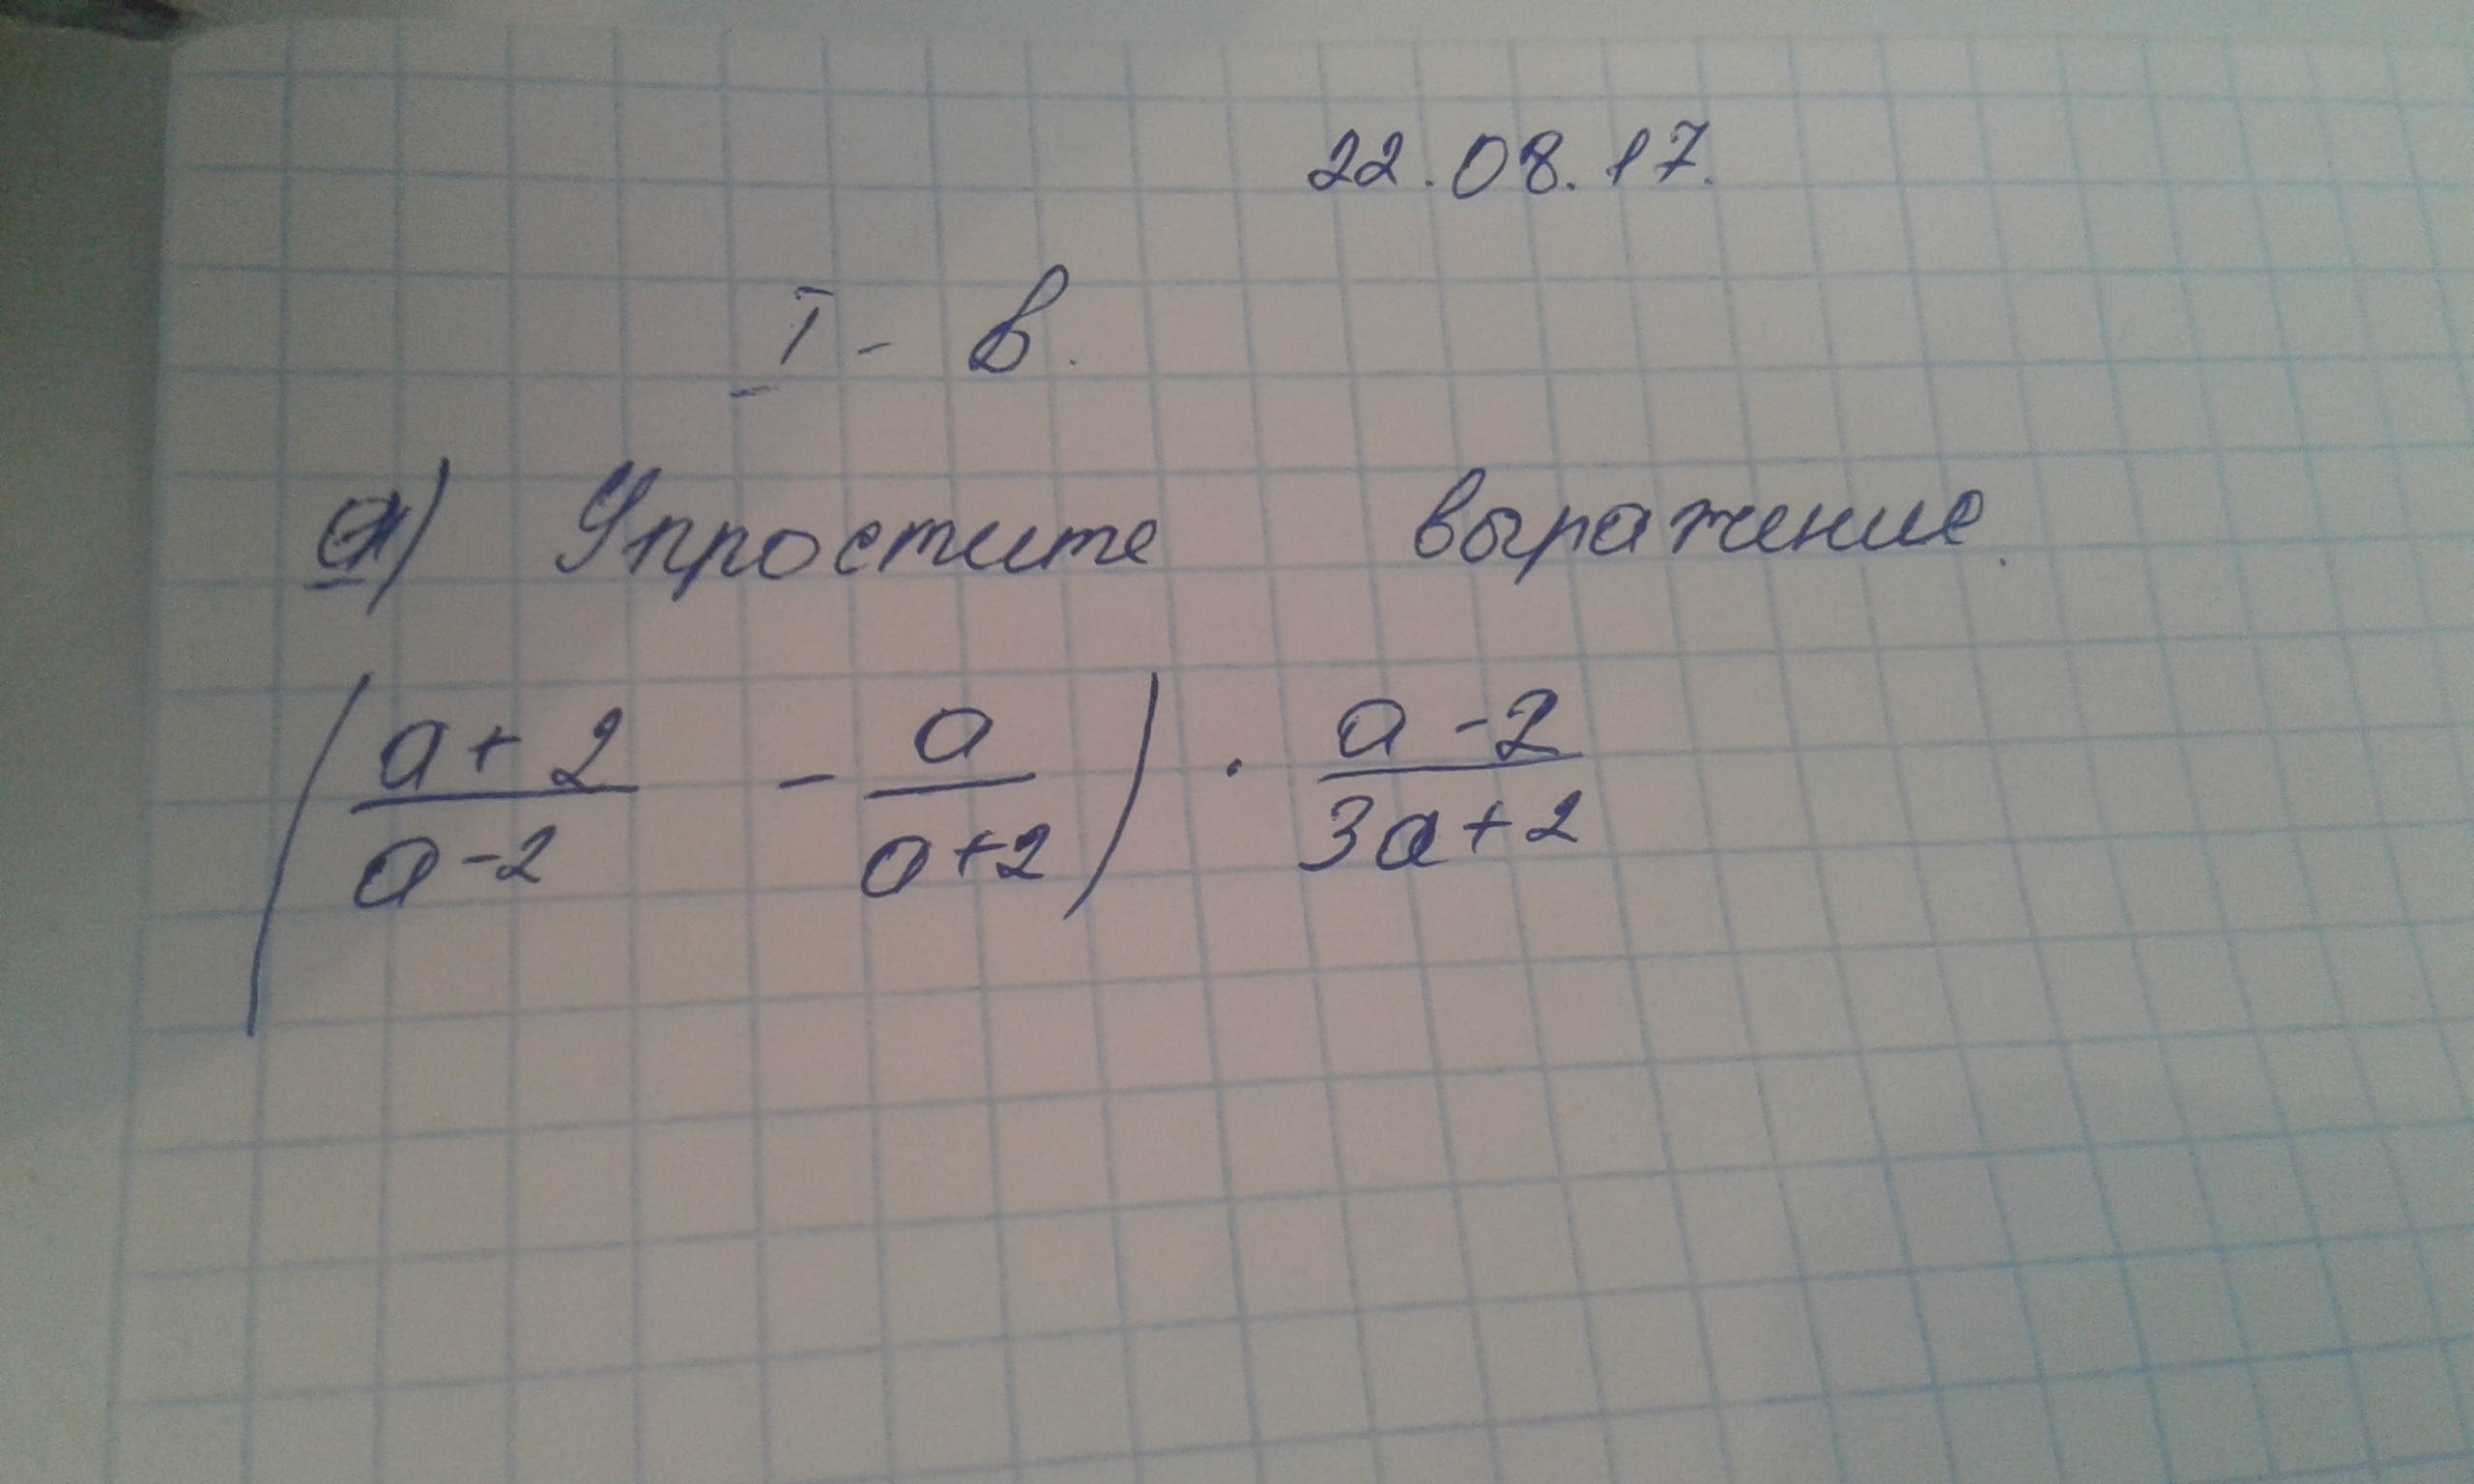 22.08.17.
I - в.
а) Упростите выражение.
(a+2/a-2 - a/a+2) · a-2/3a+2